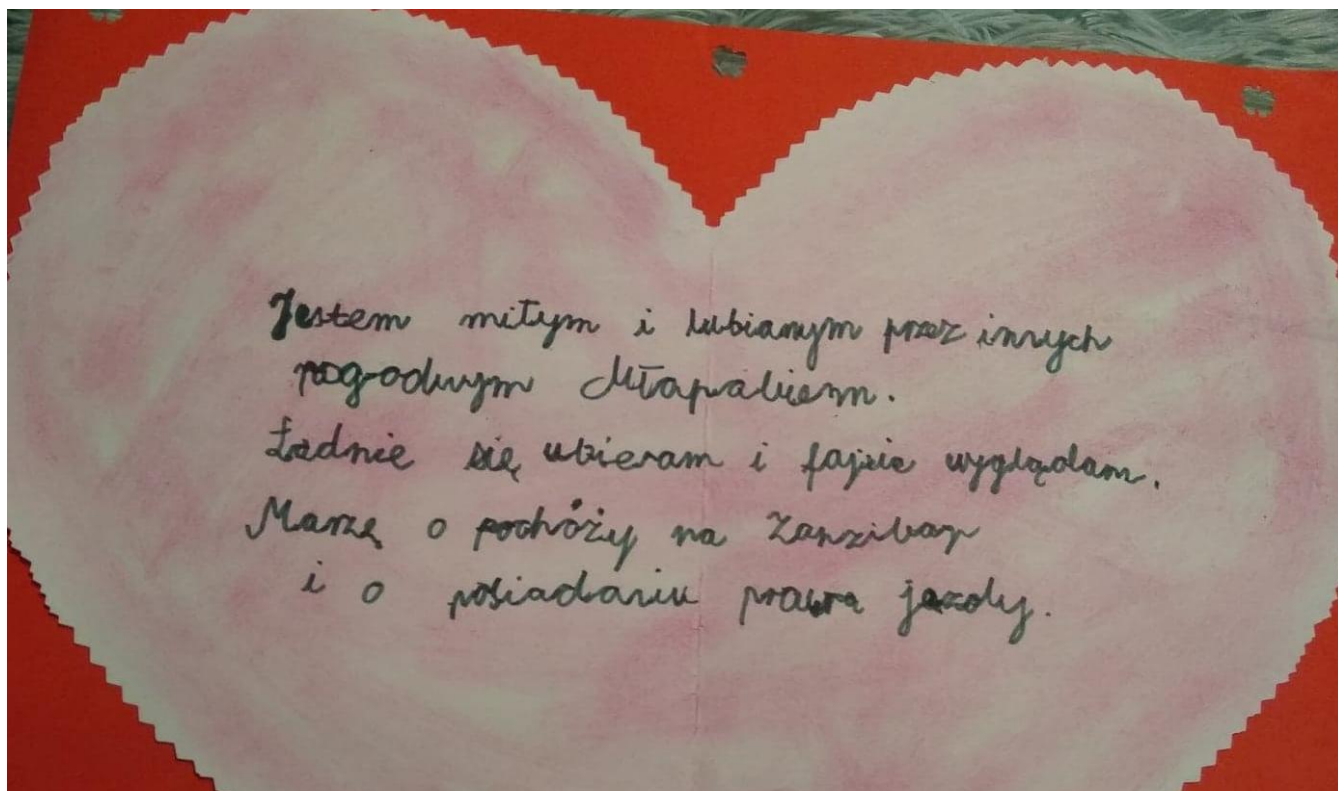 Jestem miłym i lubianym przez innych
pogodnym chłopakiem.
Ładnie się ubieram i fajnie wyglądam.
Marzę o podróży na Zanzibar
i o posiadaniu prawa jazdy.